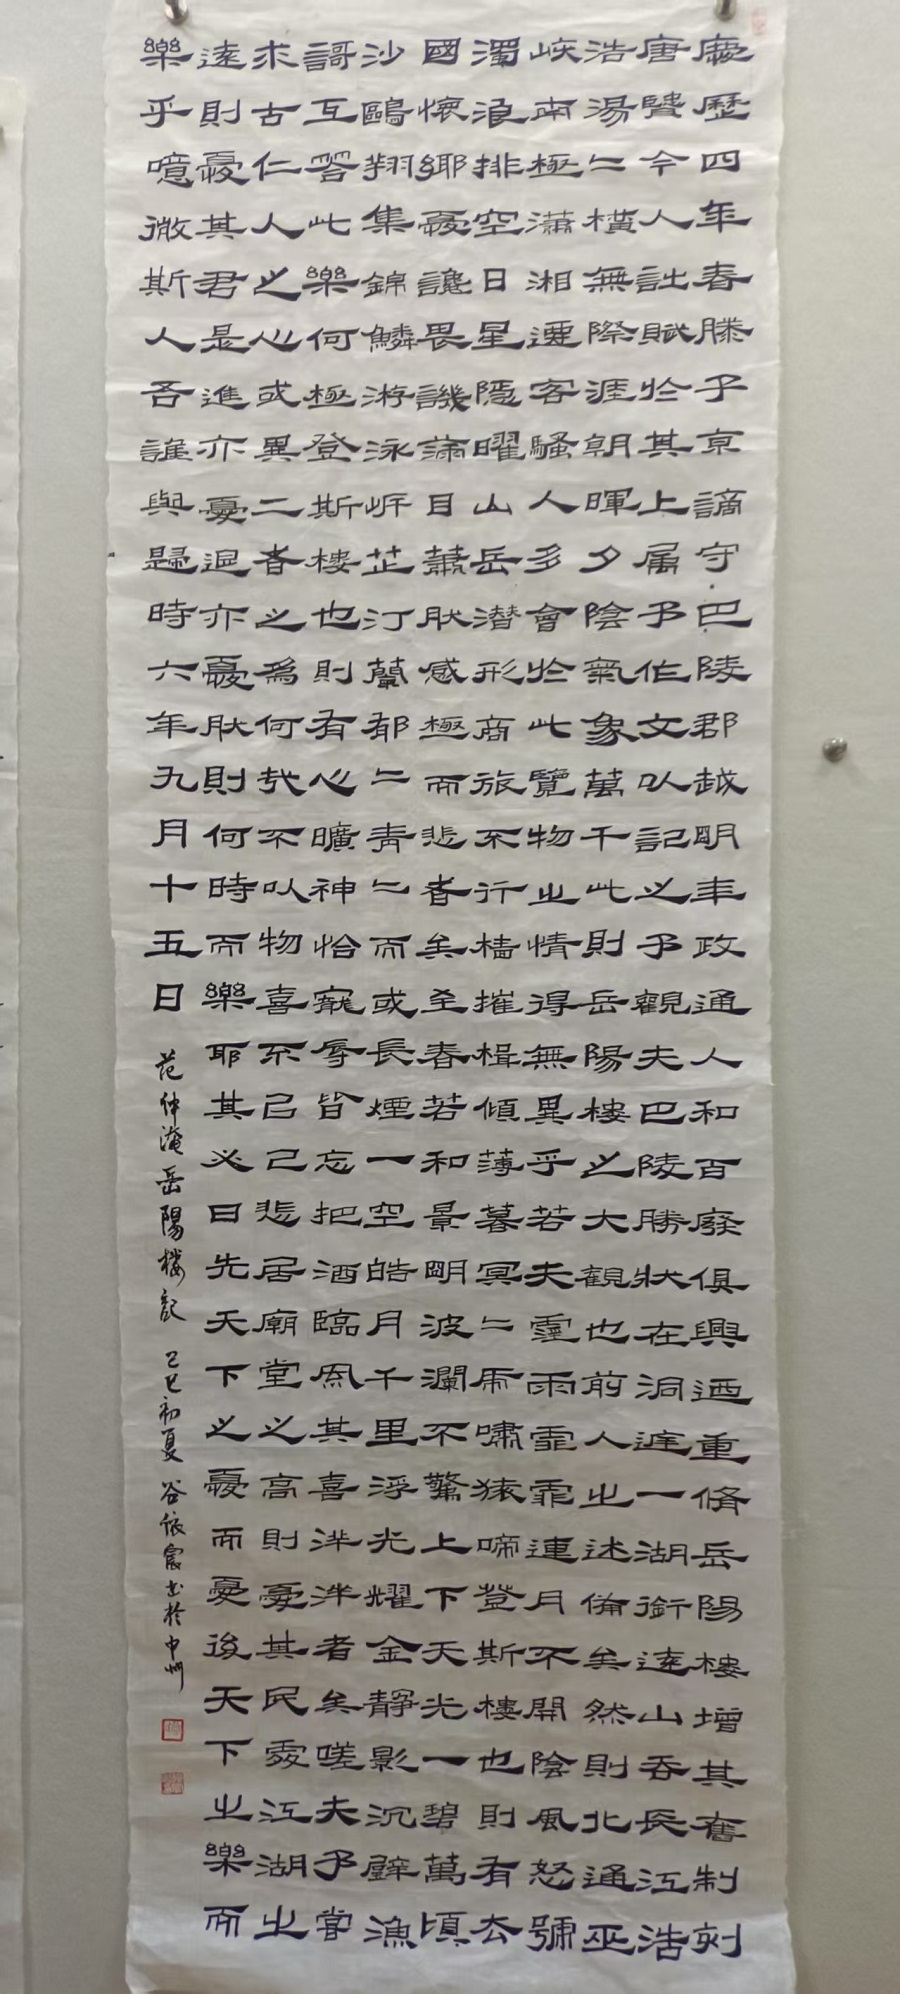 慶歷四年春滕子京謫守巴陵郡越明年政通人和百廢俱興迺重脩岳陽樓增其舊制刻
唐賢今人詩賦於其上属予作文以記之予觀夫巴陵勝狀在洞庭一湖銜遠山吞長江浩
浩湯〻橫無際涯朝暉夕陰氣象萬千此則岳陽樓之大觀也前人之述備矣然則北通巫
峽南極瀟湘遷客騷人多會於此覽物之情得無異乎若夫霪雨霏霏連月不開陰風怒號
濁浪排空日星隱曜山岳潛形商旅不行檣摧楫傾薄暮冥〻虎嘯猿啼登斯樓也則有去
國懷鄉憂讒畏譏滿目蕭然感極而悲者矣至春若和景明波瀾不驚上下天光一碧萬頃
沙鷗翔集錦鱗游泳岸芷汀蘭郁〻青〻而或長煙一空皓月千里浮光耀金靜影沉璧漁
謌互答此樂何極登斯樓也則有心曠神怡寵辱皆忘把酒臨風其喜洋洋者矣嗟夫予嘗
求古仁人之心或異二者之為何哉不以物喜不己己悲居廟堂之高則憂其民處江湖之
遠則憂其君是進亦憂退亦憂然則何時而樂耶其必曰先天下之憂而憂後天下之樂而
樂乎噫微斯人吾誰與歸時六年九月十五日
范仲淹岳陽樓記 乙巳初夏 谷依宸書於中州